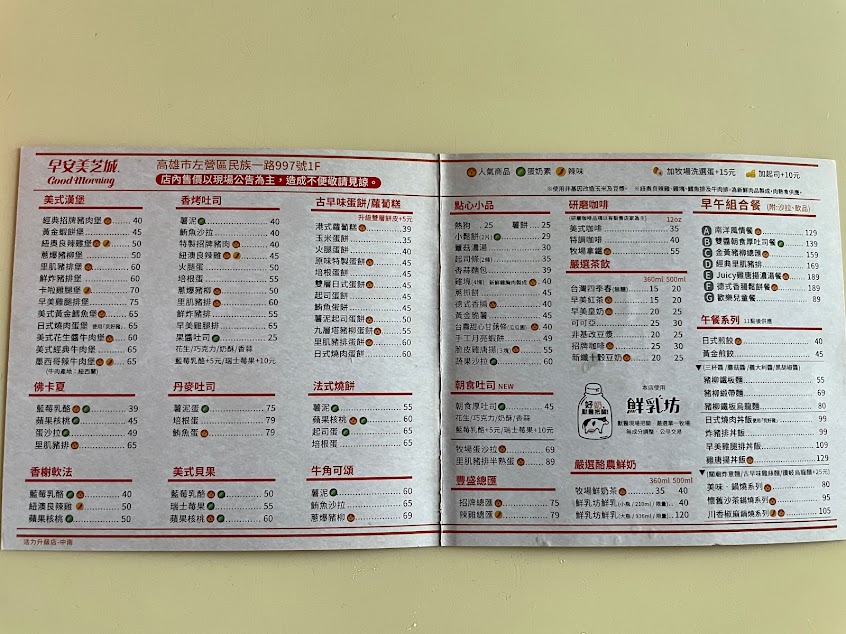 早安美芝城
Good Morning
高雄市左營區民族一路997號1F
店內售價以現場公告為主，造成不便敬請見諒。
美式漢堡
經典招牌豬肉堡 40
黃金蝦餅堡 45
紐澳良辣雞堡 50
蔥爆豬柳堡 50
里肌豬排堡 60
鮮炸豬排堡 60
卡啦雞腿堡 70
早美雞腿排堡 75
美式黃金鱈魚堡 60
日式燒肉蛋堡
美式花生醬牛肉堡 60
美式經典牛肉堡 65
墨西哥辣牛肉堡 65
(牛肉產地：紐西蘭)
佛卡夏
藍莓乳酪 39
蘋果核桃 45
蛋沙拉 49
里肌豬排 65
香榭軟法
藍莓乳酪 40
紐澳良辣雞 50
蘋果核桃 50
活力升級店-中南
香烤吐司
薯泥 40
鮪魚沙拉 40
特製招牌豬肉 40
紐澳良辣雞 45
火腿蛋 50
培根蛋 55
蔥爆豬柳 50
里肌豬排 60
鮮炸豬排 55
早美雞腿排 65
果醬吐司 25
花生/巧克力/奶酥/香蒜
藍莓乳酪+5元/瑞士莓果+10元
丹麥吐司
薯泥蛋 75
培根蛋 79
鮪魚蛋 79
美式貝果
藍莓乳酪 50
瑞士莓果 55
蘋果核桃 60
古早味蛋餅/蘿蔔糕
升級雙層餅皮+5元
港式蘿蔔糕 39
玉米蛋餅 35
火腿蛋餅 40
原味特製蛋餅 45
培根蛋餅 45
雙層日式蛋餅 45
起司蛋餅 45
鮪魚蛋餅 45
薯泥起司蛋餅 50
九層塔豬柳蛋餅 55
里肌豬排蛋餅 60
日式燒肉蛋餅 60
法式燒餅
薯泥 55
蘋果核桃 60
起司蛋 65
培根蛋 65
牛角可頌
薯泥 60
鮪魚沙拉 65
蔥爆豬柳 69
人氣商品 蛋奶素 辣味
加牧場洗選蛋+15元 加起司+10元
點心小品
熱狗 25 薯餅 25
小鬆餅(2片) 29
蘑菇濃湯 30
起司條(2條) 35
香蒜麵包 39
雞塊 40
蔥抓餅 40
德式香腸 40
黃金脆薯 45
台農甜心甘藷條 40
手工月亮蝦餅 49
脆皮雞唐揚(3塊) 55
蔬果沙拉 60
朝食吐司 NEW
朝食厚吐司 45
花生/巧克力/奶酥/香蒜
藍莓乳酪+5元/瑞士莓果+10元
牧場蛋沙拉 69
里肌豬排半熟蛋 89
豐盛總匯
招牌總匯 75
辣雞總匯 79
研磨咖啡
12oz
美式咖啡 35
特調咖啡 40
牧場拿鐵 55
嚴選茶飲
360ml 500ml
台灣四季春(無糖) 15 20
早美紅茶 15 20
早美皇奶 20 25
可可亞 25 30
非基改豆漿 20 25
招牌咖啡 25 30
新纖十穀豆奶 20 25
本店使用
好奶
鮮乳坊
獸醫現場把關 嚴選單一牧場
無成分調整 公平交易
嚴選酪農鮮奶
360ml 500ml
牧場鮮奶茶 35 40
鮮乳坊鮮乳 40
鮮乳坊鮮乳 120
早午組合餐 (附:沙拉、飲品)
A 南洋風情餐 129
B 雙醬朝食厚吐司餐 139
C 金黃豬柳總匯 159
D 經典里肌豬排 169
E Juicy雞唐揚濃湯餐 189
F 德式香腸鬆餅餐 189
G 歡樂兒童餐 89
午餐系列 11點後供應
日式煎餃 40
黃金煎餃 45
▼(三杯醬/蘑菇醬/義大利醬/黑胡椒醬)
豬柳鐵板麵 55
豬柳緞帶麵 69
豬柳鐵板烏龍麵 80
日式燒肉丼飯 99
炸豬排丼飯 99
早美雞腿排丼飯 109
雞唐揚丼飯 129
美味‧鍋燒系列 80
懷舊沙茶鍋燒系列 95
川香椒麻鍋燒系列 105